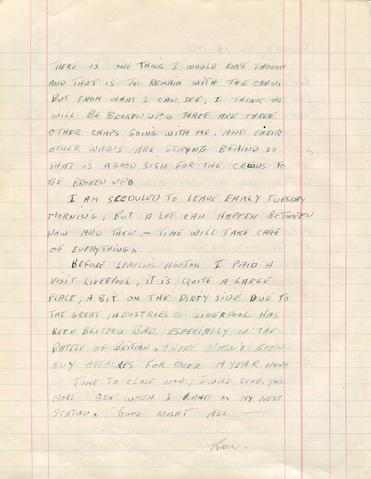 THERE IS ONE THING I WOULD LIKE THOUGH
AND THAT IS TO REMAIN WITH THE CREW.
BUT FROM WHAT I CAN SEE, I THINK WE
WILL BE BROKEN UP. THREE ARE THREE
OTHER CHAPS GOING WITH ME. AND THEIR
OTHER WAG'S ARE STAYING BEHIND SO
THAT IS A GOOD SIGN FOR THE CREWS TO
BE BROKEN UP.
I AM SCEDULED TO LEAVE EARLY TUESDAY
MORNING, BUT A LOT CAN HAPPEN BETWEEN
NOW AND THEN - TIME WILL TAKE CARE
OF EVERYTHING.
BEFORE LEAVING HOOTON I PAID A
VISIT LIVERPOOL, IT IS QUITE A LARGE
PLACE, A BIT ON THE DIRTY SIDE DUE TO
THE GREAT INDUSTRIES. LIVERPOOL HAS
BEEN BLITZED BAD, ESPECIALLY IN THE
BATTLE OF BRITIAN. THERE HASN'T BEEN
ENY ATTACKES FOR OVER A YEAR NOW.
TIME TO CLOSE NOW, I WILL GIVE YOU
MORE "GEN" WHEN I LAND ON MY NEXT
STATON. GOOD NIGHT ALL
Ken.